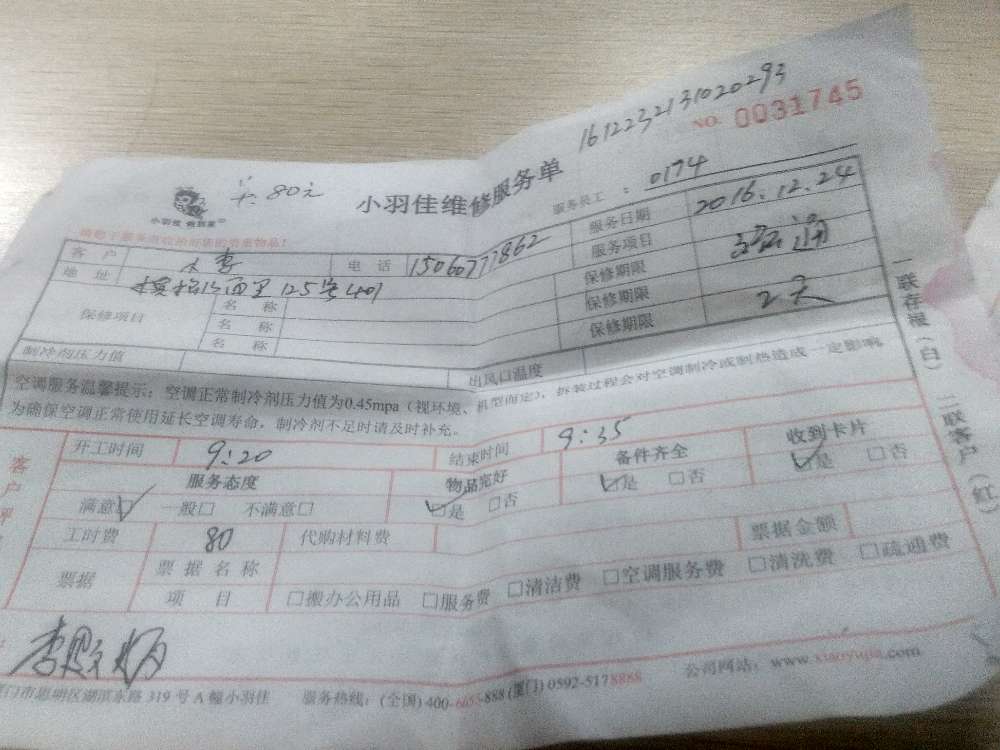 1612232131020293
NO. 0031745
卡:80元
小羽佳维修服务单
服务员工:0174
小羽佳 做到家
客户 小李 电话 15060777862 服务日期 2016.12.24
地址 125号401 服务项目 疏通
保修项目 名称 保修期限
名称 保修期限 2天
名称 保修期限
制冷剂压力值 出风口温度
空调服务温馨提示:空调正常制冷剂压力值为0.45mpa(视环境、机型而定),拆装过程会对空调制冷或制热造成一定影响。
为确保空调正常使用延长空调寿命,制冷剂不足时请及时补充。
一联存根(白) 二联客户(红)
开工时间 9:20 结束时间 9:35
服务态度 物品完好 备件齐全 收到卡片
满意☑ 一般□ 不满意□ ☑是 □否 ☑是 □否 ☑是 □否
工时费 80 代购材料费 票据金额
票据 票据名称
项目 □搬办公用品 □服务费 □清洁费 □空调服务费 □清洗费 □疏通费
公司网站:www.xiaoyujia.com
门市思明区湖滨东路319号A幢小羽佳 服务热线:(全国)400-6055-888(厦门)0592-5178888